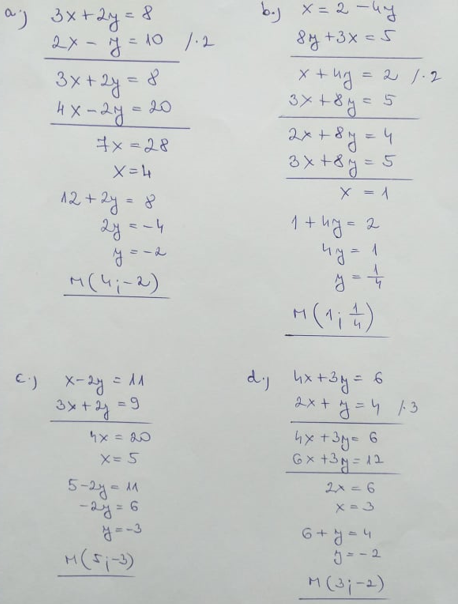 a.) 3x + 2y = 8
2x - y = 10 /·2
3x + 2y = 8
4x - 2y = 20
7x = 28
x = 4
12 + 2y = 8
2y = -4
y = -2
M(4;-2)
b.) x = 2 - 4y
8y + 3x = 5
x + 4y = 2 /·2
3x + 8y = 5
2x + 8y = 4
3x + 8y = 5
x = 1
1 + 4y = 2
4y = 1
y = 1/4
M(1; 1/4)
c.) x - 2y = 11
3x + 2y = 9
4x = 20
x = 5
5 - 2y = 11
-2y = 6
y = -3
M(5;-3)
d.) 4x + 3y = 6
2x + y = 4 /·3
4x + 3y = 6
6x + 3y = 12
2x = 6
x = 3
6 + y = 4
y = -2
M(3;-2)